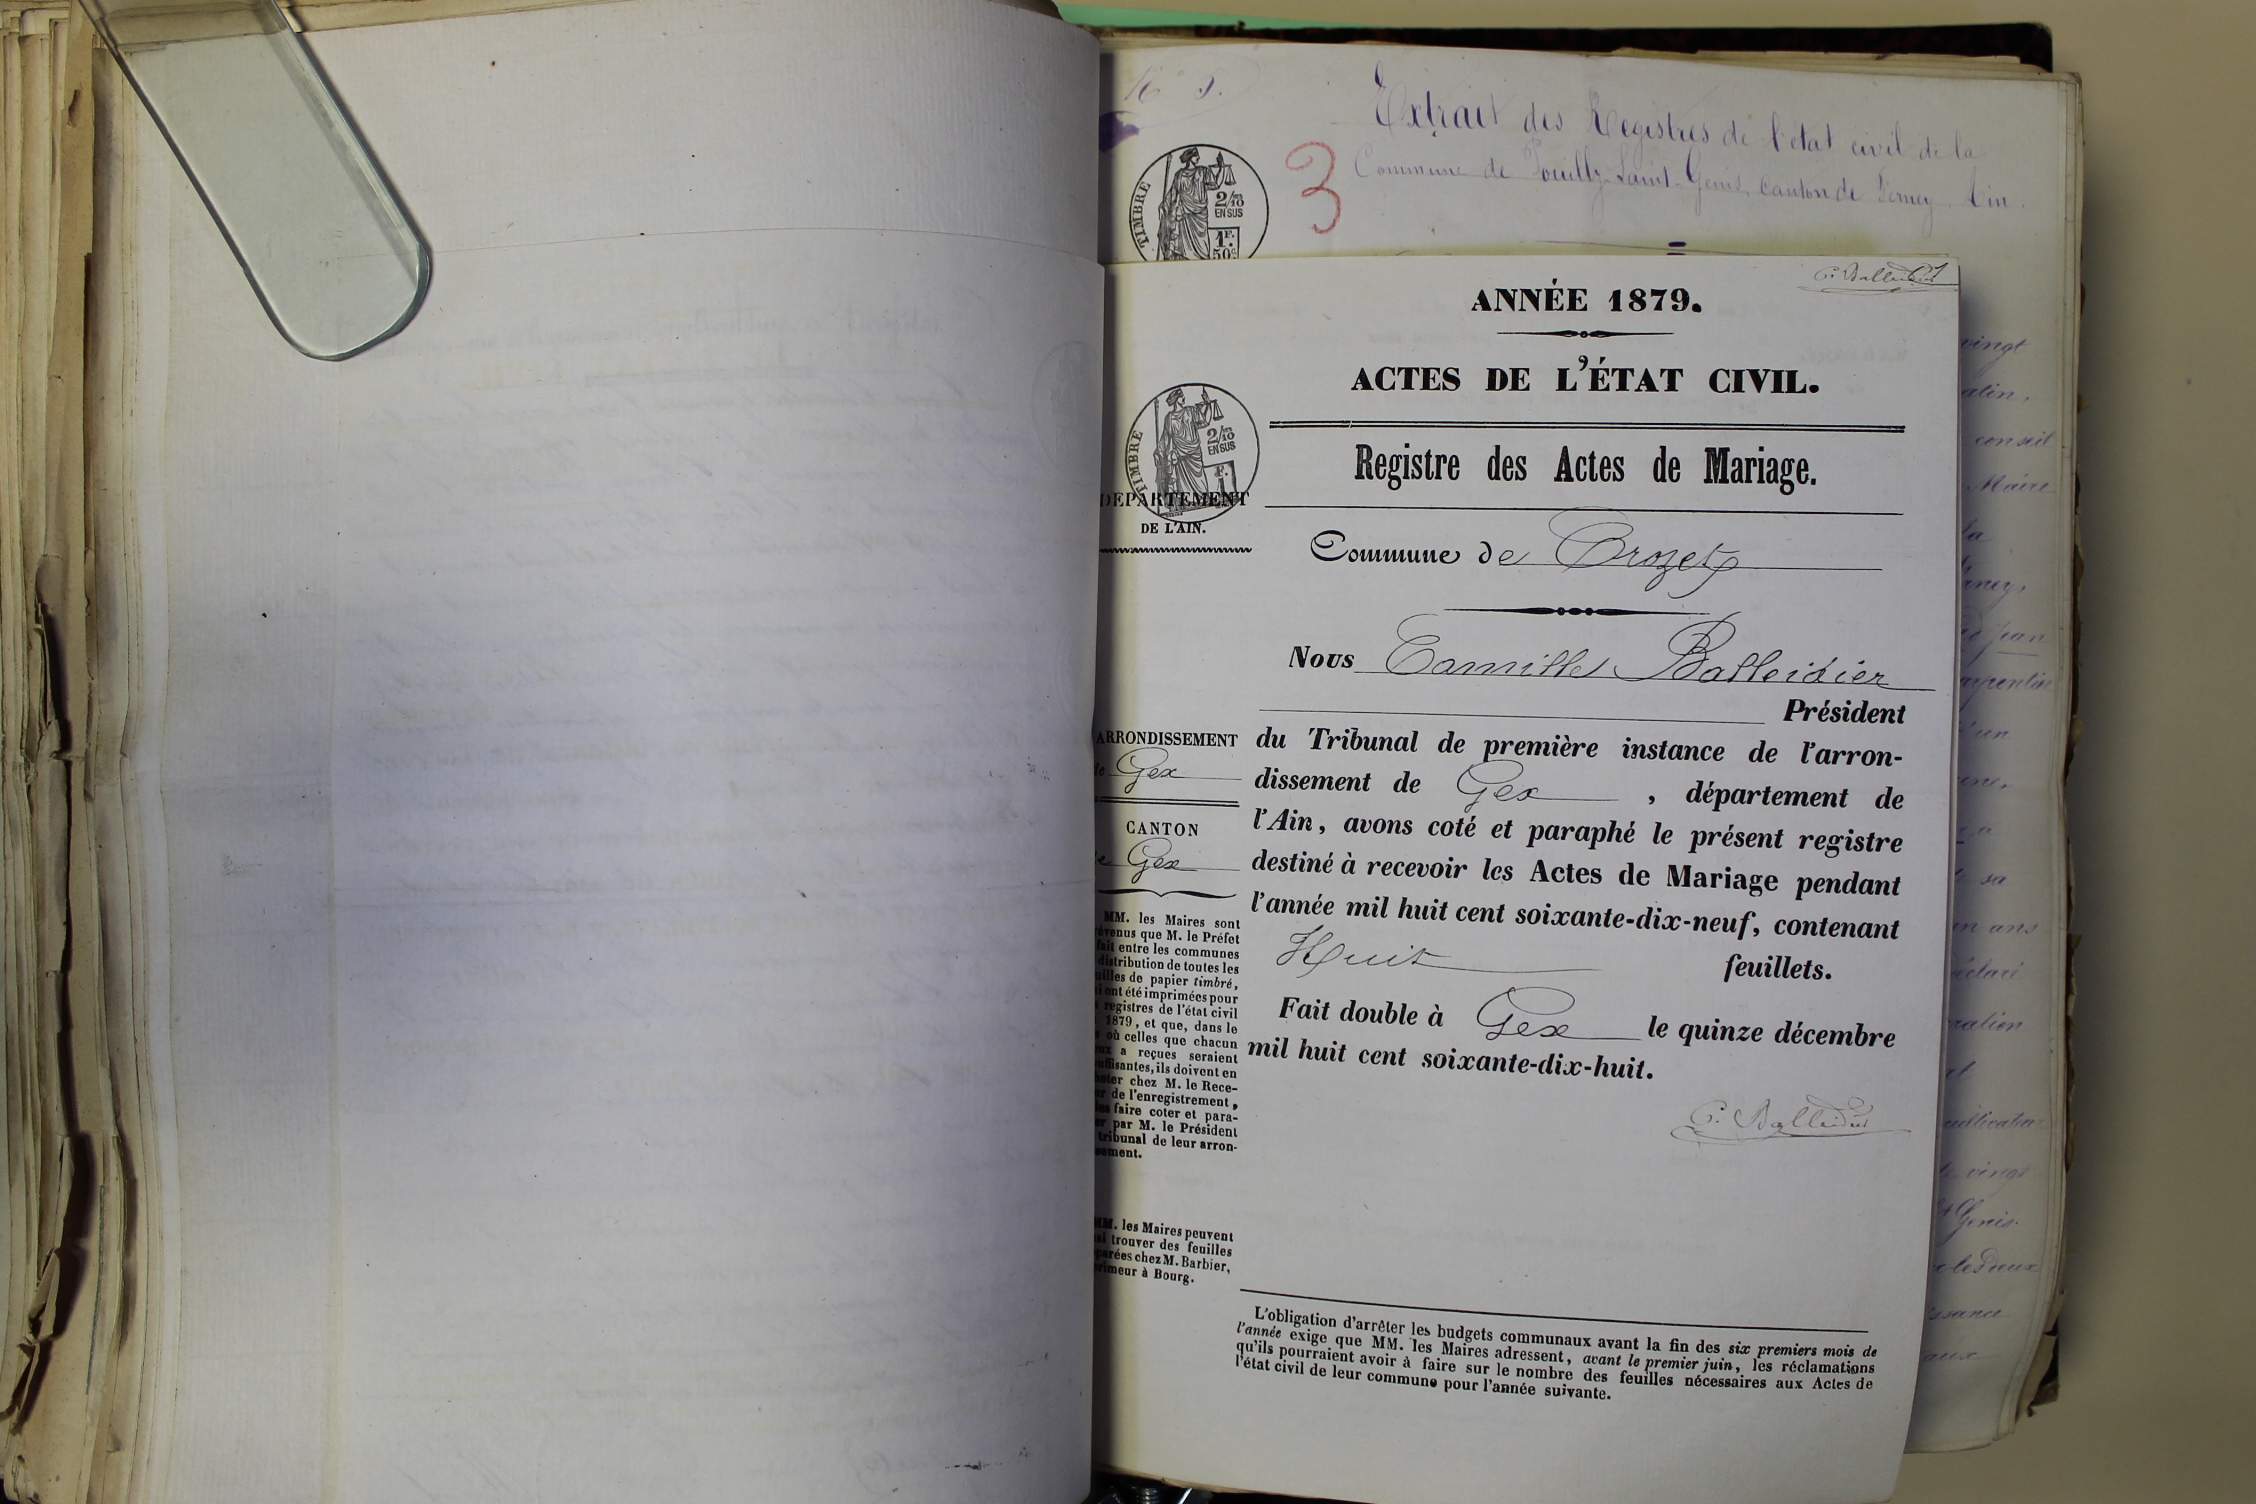 Extrait des Registres de l'état civil de la
Commune de Pouilly-Saint-Genis, canton de Ferney Ain.
3
TIMBRE
2/10
EN SUS
1F.
50c.
C. Balleidier
1
ANNÉE 1879.
ACTES DE L'ÉTAT CIVIL.
Registre des Actes de Mariage.
TIMBRE
2/10
EN SUS
DEPARTEMENT
DE L'AIN.
Commune de Crozet
Nous Camille Balleidier
Président
du Tribunal de première instance de l'arron-
dissement de Gex, département de
l'Ain, avons coté et paraphé le présent registre
destiné à recevoir les Actes de Mariage pendant
l'année mil huit cent soixante-dix-neuf, contenant
Huit feuillets.
Fait double à Gex le quinze décembre
mil huit cent soixante-dix-huit.
C. Balleidier
ARRONDISSEMENT
Gex
CANTON
Gex
MM. les Maires sont
que M. le Préfet
entre les communes
distribution de toutes les
de papier timbré,
ont été imprimées pour
registres de l'état civil
1879, et que, dans le
où celles que chacun
a reçues seraient
ils doivent en
chez M. le Rece-
de l'enregistrement,
faire coter et para-
par M. le Président
tribunal de leur arron-
MM. les Maires peuvent
trouver des feuilles
chez M. Barbier,
à Bourg.
L'obligation d'arrêter les budgets communaux avant la fin des six premiers mois de
l'année exige que MM. les Maires adressent, avant le premier juin, les réclamations
qu'ils pourraient avoir à faire sur le nombre des feuilles nécessaires aux Actes de
l'état civil de leur commune pour l'année suivante.
vingt
conseil
Maire
la
Jean
un
sa
ans
vingt
Genis.